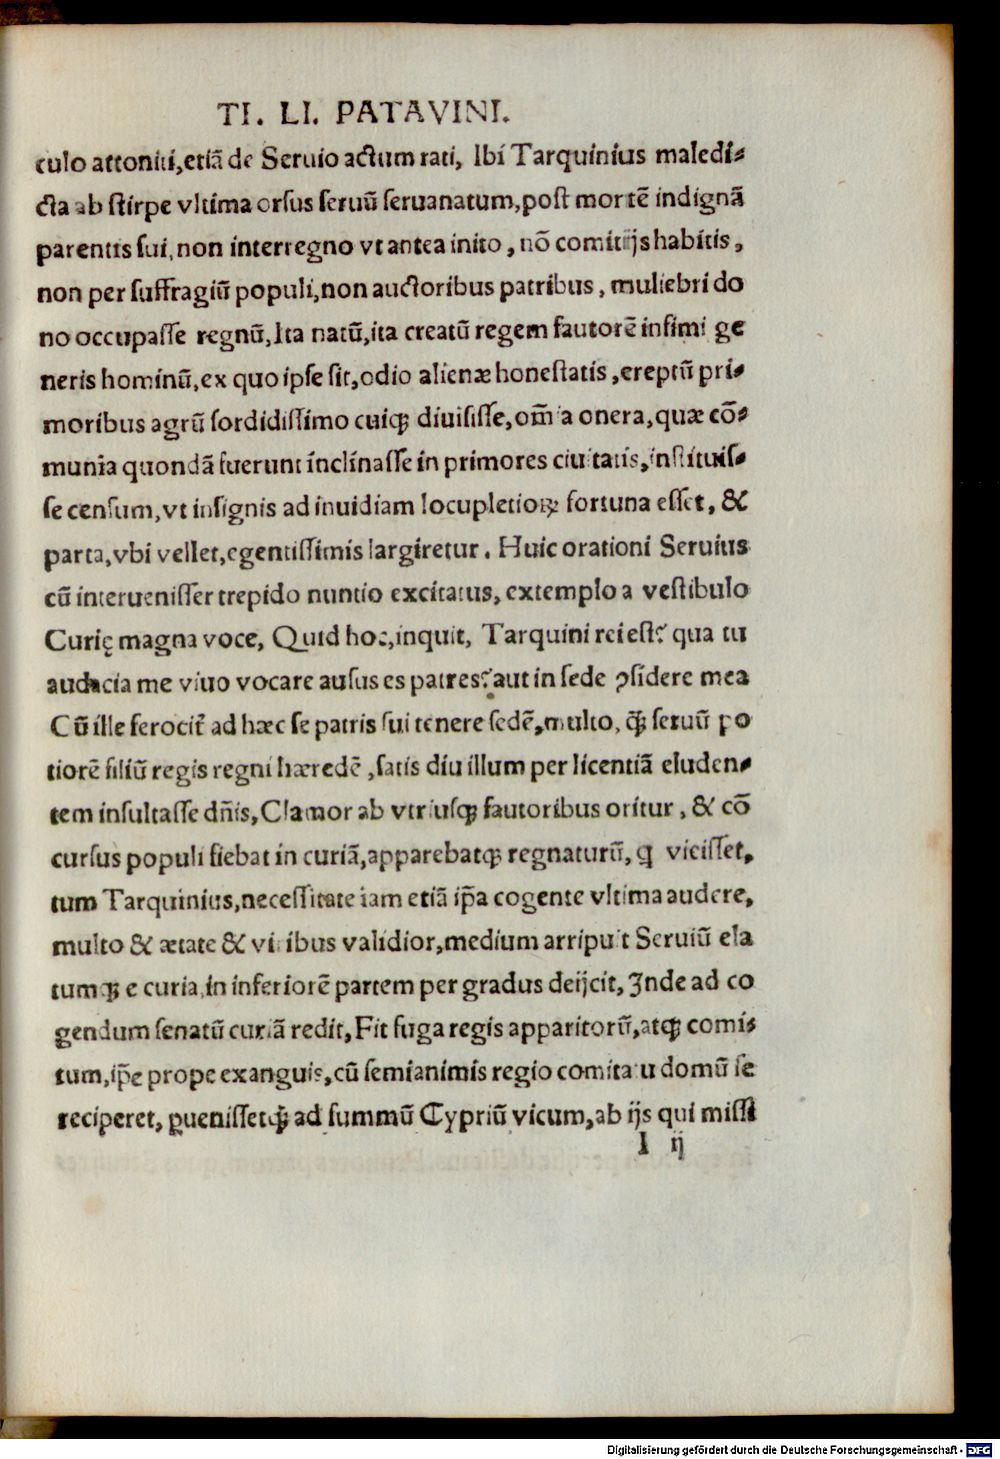 TI. LI. PATAVINI.
culo attoniti,etiā de Seruio actum rati, Ibi Tarquinius maledi⸗
cta ab stirpe vltima orsus seruū seruanatum,post mortē indignā
parentis sui,non interregno vt antea inito, nō comitijs habitis,
non per suffragiū populi,non auctoribus patribus, muliebri do
no occupasse regnū,Ita natū,ita creatū regem fautorē infimi ge
neris hominū,ex quo ipse sit,odio alienæ honestatis,ereptū pri⸗
moribus agrū sordidissimo cuiqꝫ diuisisse,om̄ia onera,quæ cō⸗
munia quondā fuerunt inclinasse in primores ciuitatis,instituis⸗
se censum,vt insignis ad inuidiam locupletioꝝ fortuna esset, &
parta,vbi vellet,egentissimis largiretur. Huic orationi Seruius
cū interuenisset trepido nuntio excitatus, extemplo a vestibulo
Curię magna voce, Quid hoc,inquit, Tarquini rei est? qua tu
audacia me viuo vocare ausus es patres?aut in sede ꝯsidere mea
Cū ille ferocit̄ ad hæc se patris sui tenere sedē,multo, q̄ꝫ seruū po
tiorē filiū regis regni hæredē,satis diu illum per licentiā eluden⸗
tem insultasse dn̄is,Clamor ab vtriusqꝫ fautoribus oritur, & cō
cursus populi fiebat in curiā,apparebatqꝫ regnaturū, ꝗ vicisset,
tum Tarquinius,necessitate iam etiā ip̄a cogente vltima audere,
multo & ætate & viribus validior,medium arripuit Seruiū ela
tumqꝫ e curia,in inferiorē partem per gradus deijcit, Inde ad co
gendum senatū curiā redit,Fit fuga regis apparitorū,atqꝫ comi⸗
tum,ip̄e prope exanguis,cū semianimis regio comitatu domū se
reciperet, ꝑuenissetqꝫ ad summū Cypriū vicum,ab ijs qui missi
I ij
Digitalisierung gefördert durch die Deutsche Forschungsgemeinschaft - DFG